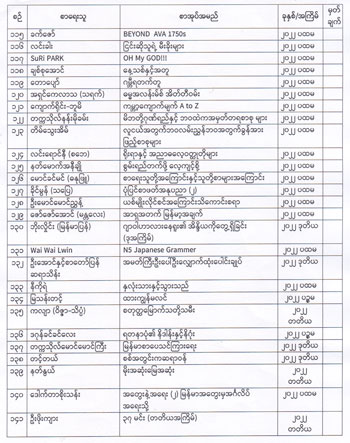 စဉ် စာရေးသူ စာအုပ်အမည် ခုနှစ်/အကြိမ် မှတ်ချက်
၁၁၅ ခက်ဇော် BEYOND AVA 1750s ၂၀၂၂ ပထမ
၁၁၆ လင်းခါး ငြင်းဆိုသူရဲ့ မီးခိုးများ ၂၀၂၂ ပထမ
၁၁၇ SuRi PARK OH My GOD!!! ၂၀၂၂ ပထမ
၁၁၈ ချစ်စုအောင် နေ့သစ်နှင့်အတူ ၂၀၂၂ ပထမ
၁၁၉ တောပျော် ဂမ္ဘီရတက်တူ ၂၀၂၂ ပထမ
၁၂၀ အရှင်ကေလာသ (သရက်) ဓမ္မအလန်းမ်စ် အိတ်တီဝမ်း ၂၀၂၂ ပထမ
၁၂၁ ကျောက်ရိုင်း-တူမိ ကမ္ဘာကျော်မျက် A to Z ၂၀၂၂ ပထမ
၁၂၂ တက္ကသိုလ်နန်းမိုခမ်း မိတတို့ဂုဏ်ရည်နှင့် ဘဝထဲကအမှတ်တရစာစု များ ၂၀၂၂ ပထမ
၁၂၃ တိမ်သွေးအိမ် လူငယ်အတွက်ဘဝလမ်းညွှန်ဘဝအတွက်ခွန်အား
ဖြည့်စာစုများ ၂၀၂၂ ပထမ
၁၂၄ လင်းရောင်နီ (စဘေ) ရိုးရာနှင့် အညာဓလေ့ဝတ္ထုတိုများ ၂၀၂၂ ပထမ
၁၂၅ နတ်မောက်အနီချို စွမ်းရည်တက်ဖို့ လေ့ကျင့်စို့ ၂၀၂၂ ပထမ
၁၂၆ မောင်ခင်မင် (ဓနုဖြူ) စာရေးသူတို့အကြောင်းနှင့်သူတို့စာများအကြောင်း ၂၀၂၂ ပထမ
၁၂၇ ခိုင်မွန် (သပြေ) ပုံပြင်စာဖတ်အနုပညာ (၂) ၂၀၂၂ ပထမ
၁၂၈ ဦးမောင်မောင်ညွန့် ယစ်မျိုးလိုင်စင်အကြောင်းသိကောင်းစရာ ၂၀၂၂ ပထမ
၁၂၉ ဇော်ဇော်အောင် (မန္တလေး) အာရှအတက် မြန်မာ့အချက် ၂၀၂၂ ပထမ
၁၃၀ ဘုံးလှိုင်း (မြန်မာပြန်)
၂၀၂၂ ဒုတိယ
၁၃၁ Wai Wai Lwin N5 Japanese Grammer ၂၀၂၂ ပထမ
၁၃၂ ဦးအောင်နှင့်စာတော်ပြန်
ဆရာသိန်း အမတ်ကြီးဦးပေါ်ဦးလျှောက်ထုံးပေါင်းချုပ် ၂၀၂၂ ပထမ
၁၃၃ နီကိုရဲ နှလုံးသားနှင့်သွားသည် ၂၀၂၂ ပထမ
၁၃၄ မြသန်းတင့် ထားကျွန်မလင် ၂၀၂၂ ပဥ္စမ
၁၃၅ ကလျာ (ဝိဇ္ဇာ-သိပ္ပံ) စတုတ္ထမြောက်သတို့သမီး ၂၀၂၂
တတိယ
၁၃၆ ဒဂုန်ခင်ခင်လေး ရတနာပုံ၏ နိဒါန်းနှင့်နိဂုံး ၂၀၂၂ ပဥ္စမ
၁၃၇ တက္ကသိုလ်မောင်မောင်ကြီး မြန်မာစာပေသင်ကြားရေး ၂၀၂၂ ဒုတိယ
၁၃၈ တင့်တယ် စစ်အတွင်းကဆရာဝန် ၂၀၂၂ ဒုတိယ
၁၃၉ နတ်နွယ် မိုးအဆုံးမြေအဆုံး ၂၀၂၂
တတိယ
၁၄၀ ဒေါက်တာစိုးသန်း အတွေးနဲ့အရေး (၂) မြန်မာအတွေးမှအင်္ဂလိပ်
အရေးသို့ ၂၀၂၂ ပထမ
၁၄၁ ဦးဖိုးကျား ၃၇ မင်း (တတိယအကြိမ်) ၂၀၂၂
တတိယ